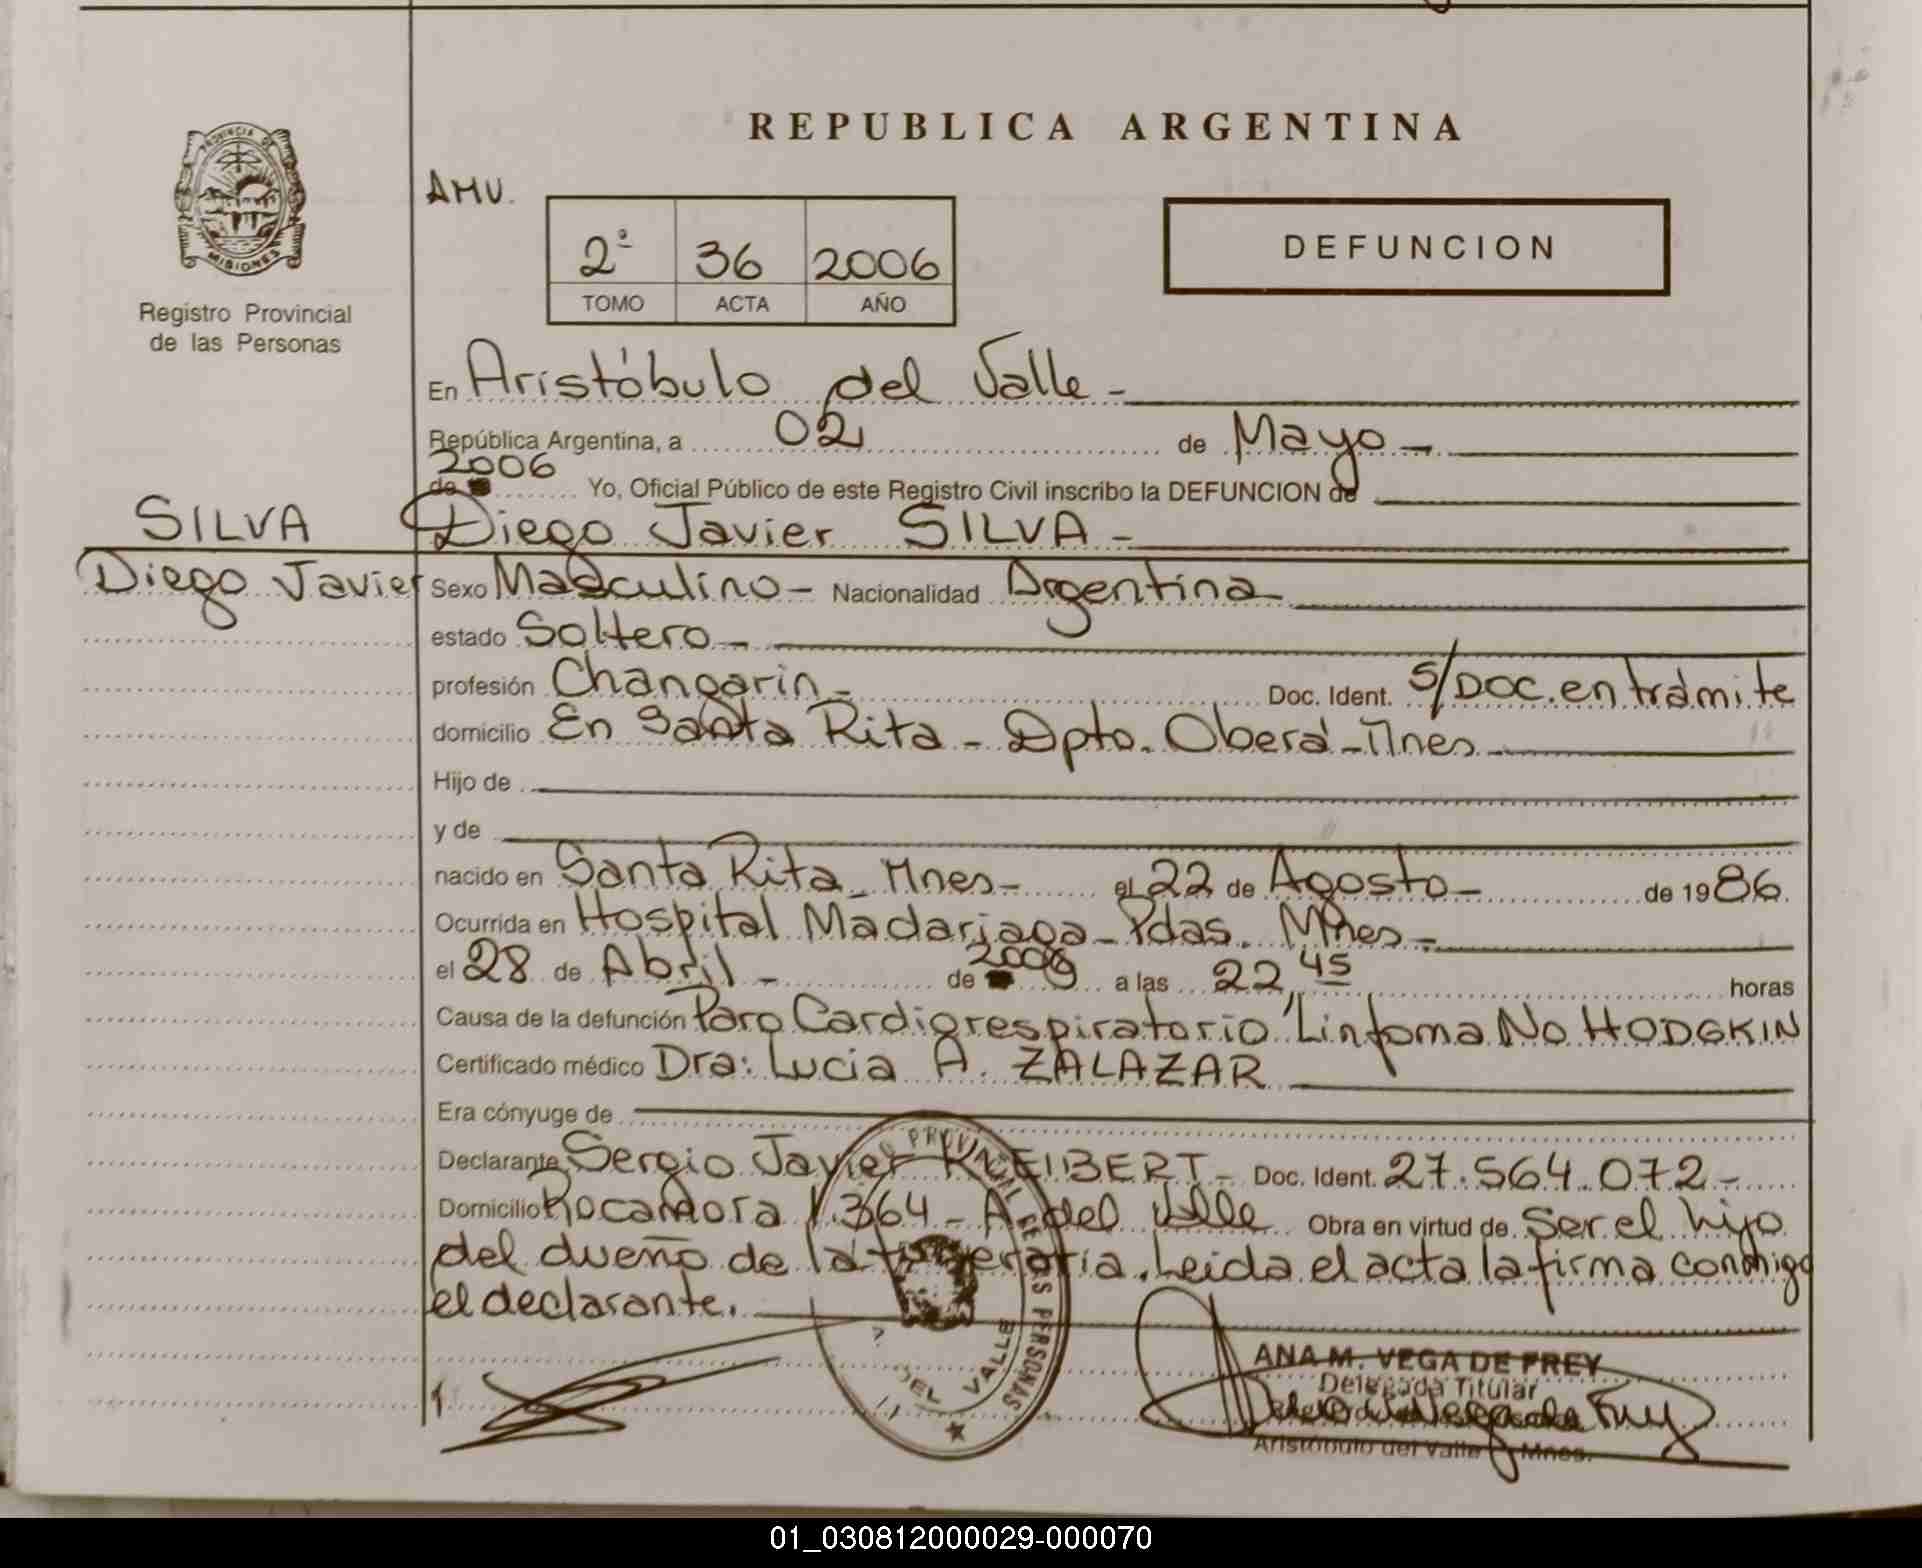 REPUBLICA ARGENTINA
PROVINCIA DE
MISIONES
Registro Provincial
de las Personas
AMV.
2º 36 2006
TOMO ACTA AÑO
DEFUNCION
En Aristóbulo del Valle -
República Argentina, a 02 de Mayo -
2006
de Yo, Oficial Público de este Registro Civil inscribo la DEFUNCION de
SILVA
Diego Javier
Diego Javier SILVA -
Sexo Masculino - Nacionalidad Argentina
estado Soltero -
profesión Changarin - Doc. Ident. S/Doc. en trámite
domicilio En Santa Rita - Dpto. Oberá - Mnes -
Hijo de
y de
nacido en Santa Rita - Mnes - el 22 de Agosto - de 1986.
Ocurrida en Hospital Madariaga - Pdas. Mnes -
el 28 de Abril - de 2006 a las 22,45 horas
Causa de la defunción Paro Cardiorespiratorio, Linfoma No HODGKIN
Certificado médico Dra: Lucia A. ZALAZAR
Era cónyuge de
Declarante Sergio Javier KNEIBERT - Doc. Ident. 27.564.072 -
Domicilio Rocamora 1.364 - A. del Valle Obra en virtud de Ser el hijo
del dueño de la funeraria. Leida el acta la firma conmigo
el declarante.
PROVINCIAL DE LAS PERSONAS
DEL VALLE
ANA M. VEGA DE FREY
Delegada Titular
Aristóbulo del Valle - Mnes.
01_030812000029-000070